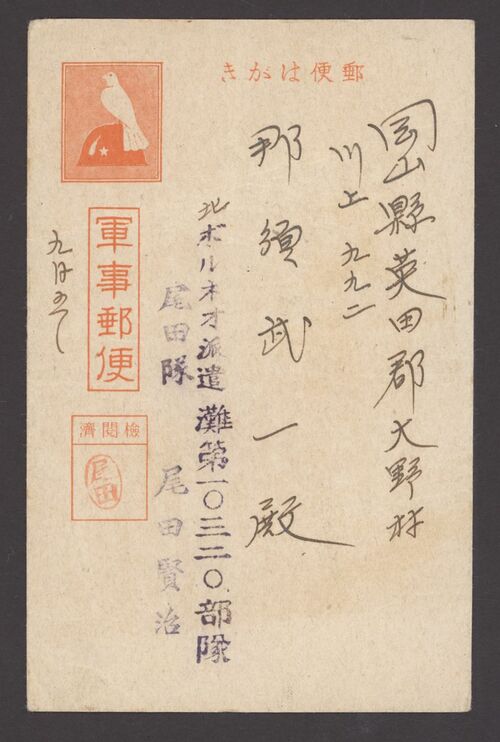 郵便はがき
岡山縣英田郡大野村
川上九九二
那須武一殿
北ボルネオ派遣灘第一〇三二〇部隊
尾田隊
尾田賢治
軍事郵便
檢閲濟
尾田